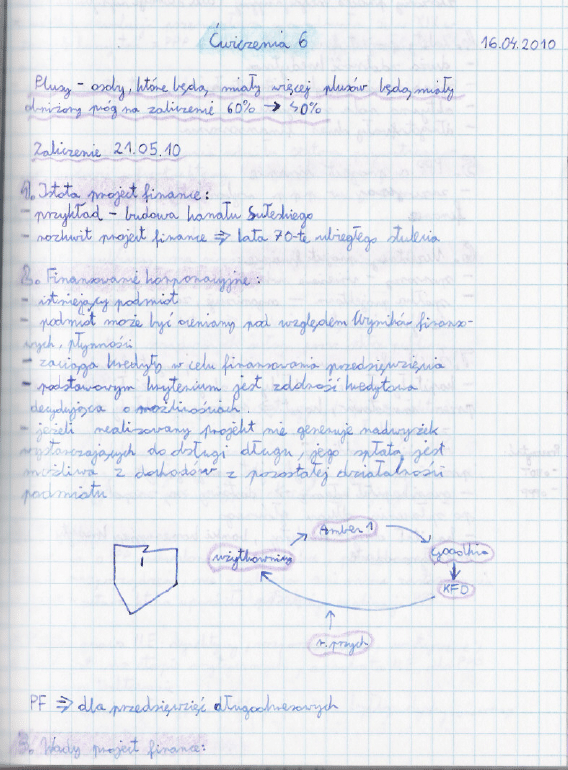 Ćwiczenia 6
16.04.2010
Plusy – osoby, które będą miały więcej plusów będą miały
obniżony próg na zaliczenie 60% → 50%
Zaliczenie 21.05.10
1. Istota project finance:
- przykład – budowa kanału Sueskiego
- rozkwit project finance ⇒ lata 70-te ubiegłego stulecia
2. Finansowanie korporacyjne:
- istniejący podmiot
- podmiot może być oceniany pod względem wyników finanso-
wych, płynności
- zaciąga kredyty w celu finansowania przedsięwzięcia
- podstawowym kryterium jest zdolność kredytowa
decydująca o możliwościach.
- jeżeli realizowany projekt nie generuje nadwyżek
wystarczających do obsługi długu, jego spłata jest
możliwa z dochodów z pozostałej działalności
podmiotu
Amber 1
użytkownicy
KFD
r. przych
PF ⇒ dla przedsięwzięć długookresowych
3. Wady project finance: